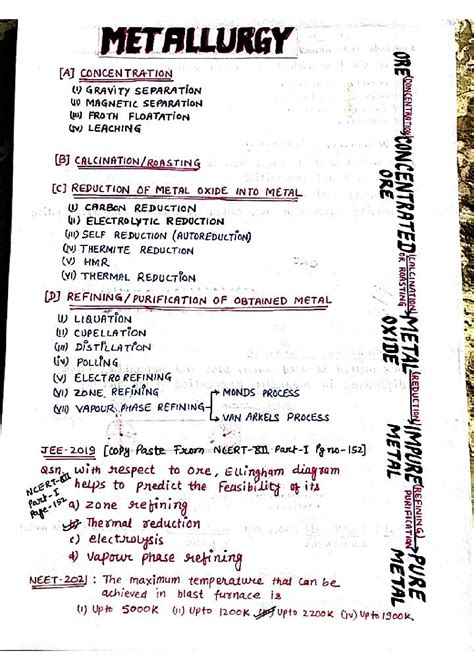 METALLURGY
[A] CONCENTRATION
(i) GRAVITY SEPARATION
(ii) MAGNETIC SEPARATION
(iii) FROTH FLOATATION
(iv) LEACHING
[B] CALCINATION/ROASTING
[C] REDUCTION OF METAL OXIDE INTO METAL
(i) CARBON REDUCTION
(ii) ELECTROLYTIC REDUCTION
(iii) SELF REDUCTION (AUTOREDUCTION)
(iv) THERMITE REDUCTION
(v) HMR
(vi) THERMAL REDUCTION
[D] REFINING/PURIFICATION OF OBTAINED METAL
(i) LIQUATION
(ii) CUPELLATION
(iii) DISTILLATION
(iv) POLLING
(v) ELECTROREFINING
(vi) ZONE REFINING
(vii) VAPOUR PHASE REFINING
MONDS PROCESS
VAN ARKELS PROCESS
JEE-2019 [Copy Paste From NCERT-XII Part-I Pg no-152]
NCERT-XII
Part-I
Page-152
Qsn. With respect to Ore, Ellingham diagram
helps to predict the Feasibility of its
a) zone refining
b) Thermal reduction
c) electrolysis
d) vapour phase refining
NEET-2021: The maximum temperature that can be
achieved in blast furnace is
(i) Upto 5000K (ii) Upto 1200K (iii) Upto 2200K (iv) Upto 1900K
ORE (CONCENTRATION) CONCENTRATED ORE (CALCINATION OR ROASTING) METAL OXIDE (REDUCTION) IMPURE METAL (REFINING/PURIFICATION) PURE METAL